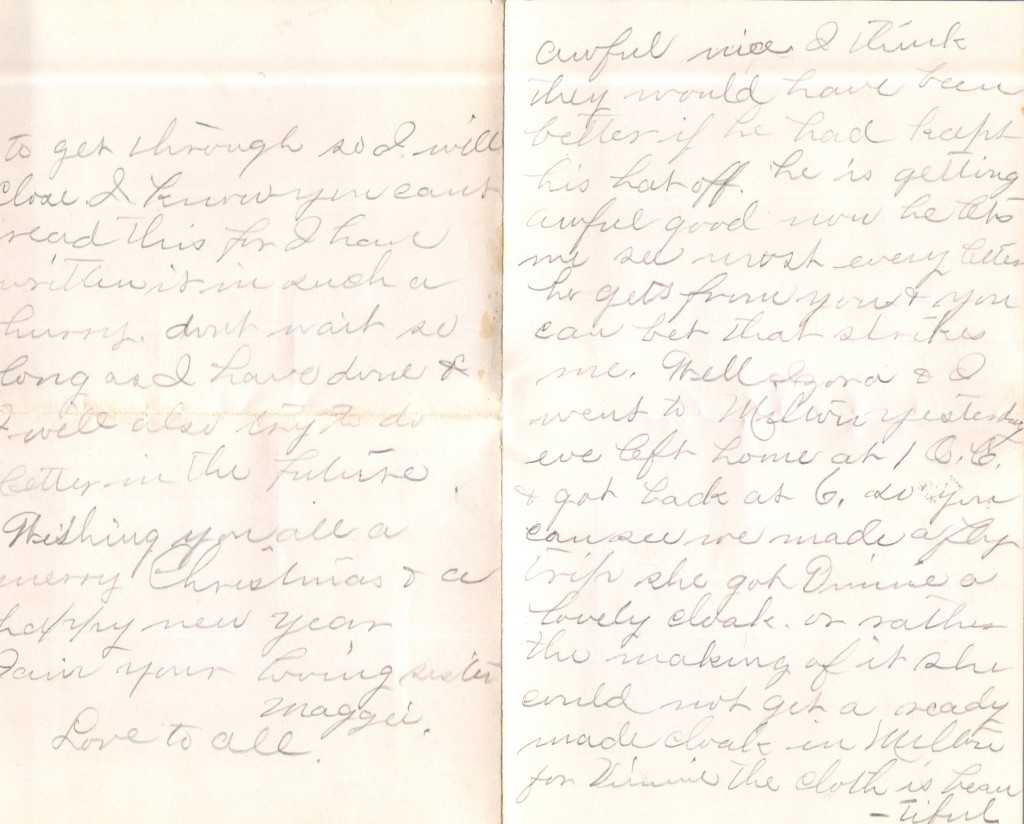 to get through so I will
close I know you cant
read this for I have
written it in such a
hurry. dont wait so
long as I have done &
I will also try to do
better in the future.
Wishing you all a
merry Christmas & a
happy new year
I am your loving sister
Maggie.
Love to all.
awful nice I think
they would have been
better if he had kept
his hat off. he is getting
awful good now he lets
me see most every letter
he gets from you & you
can bet that strikes
me. Well Izora & I
went to Melton yesterday
eve left home at 1 O.C.
& got back at 6, so you
can see we made a fly
trip she got Dinnie a
lovely cloak. or rather
the making of it she
could not get a ready
made cloak in Melton
for Dinnie the cloth is beau
-tiful